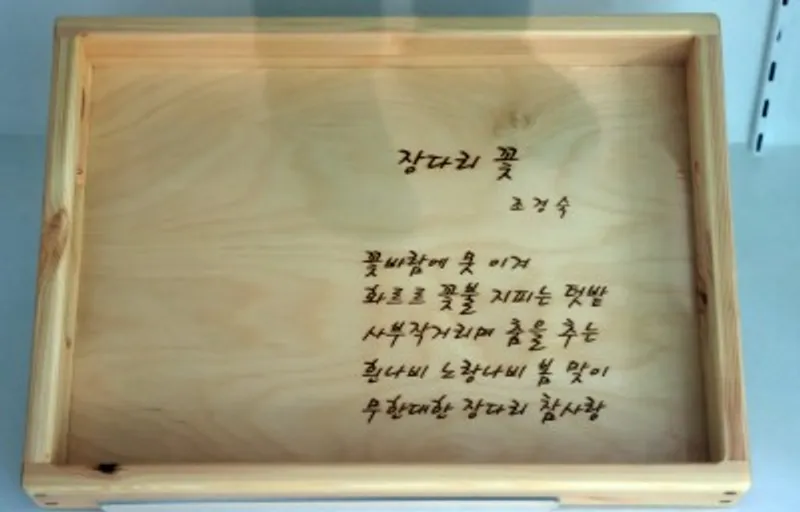 장다리 꽃
조경숙
꽃바람에 못 이겨
화르르 꽃불 지피는 텃밭
사부작거리며 춤을 추는
흰나비 노랑나비 봄 맞이
무한대한 장다리 참사랑